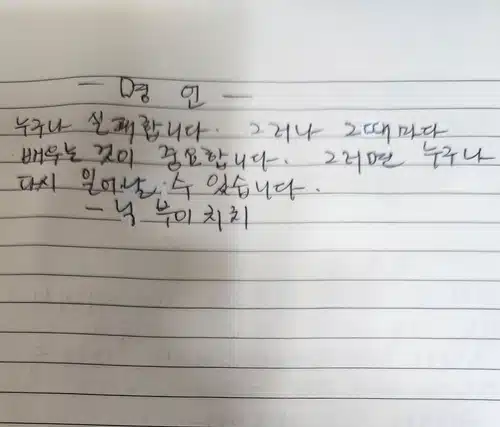 - 명 언 -
누구나 실패합니다. 그러나 그때마다
배우는 것이 중요합니다. 그러면 누구나
다시 일어날 수 있습니다.
- 닉 부이치치